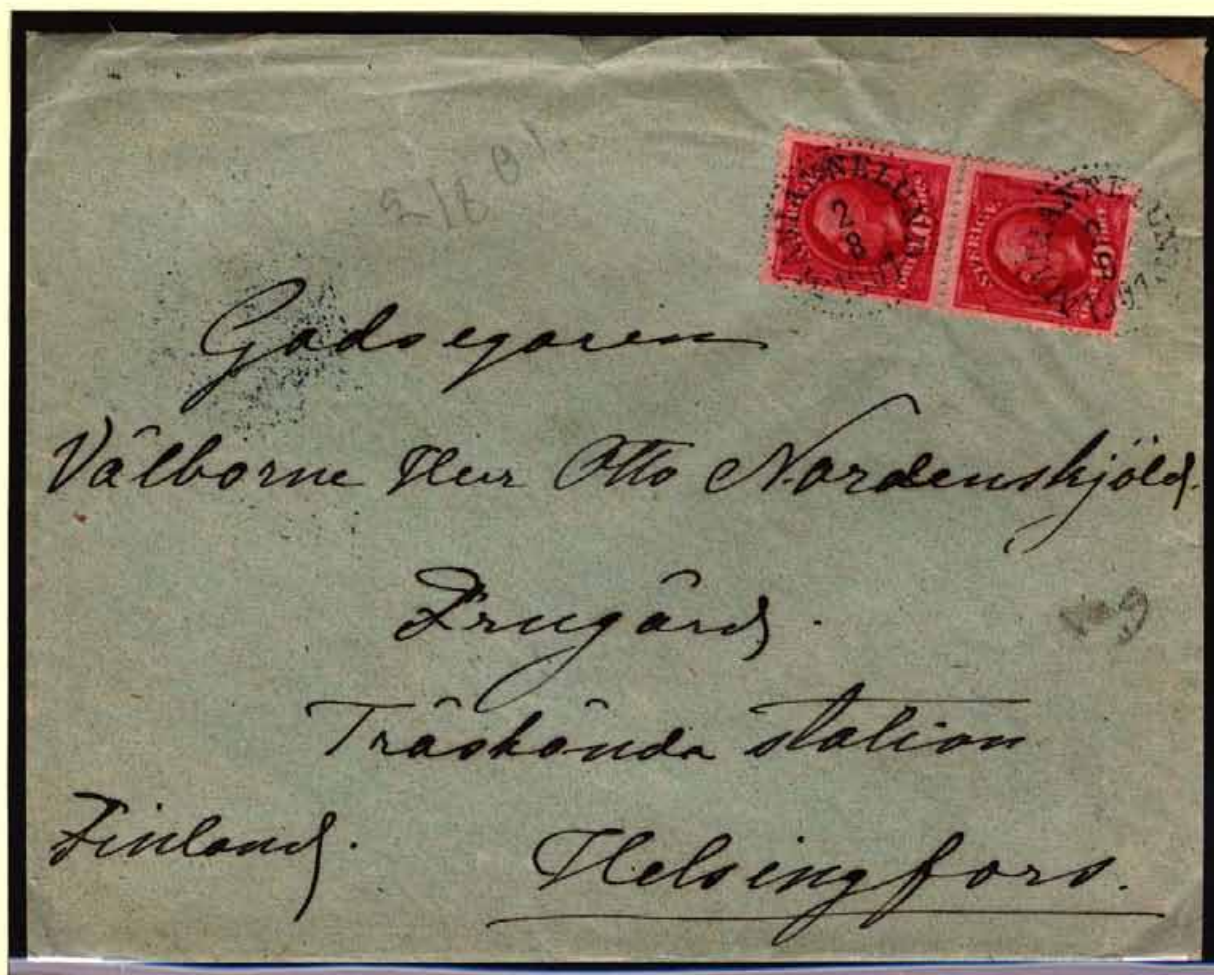 SVERIGE
2
8
Godsegaren
Välborne Herr Otto Nordenskjöld.
Frugård.
Träskända station
Finland.
Helsingfors.